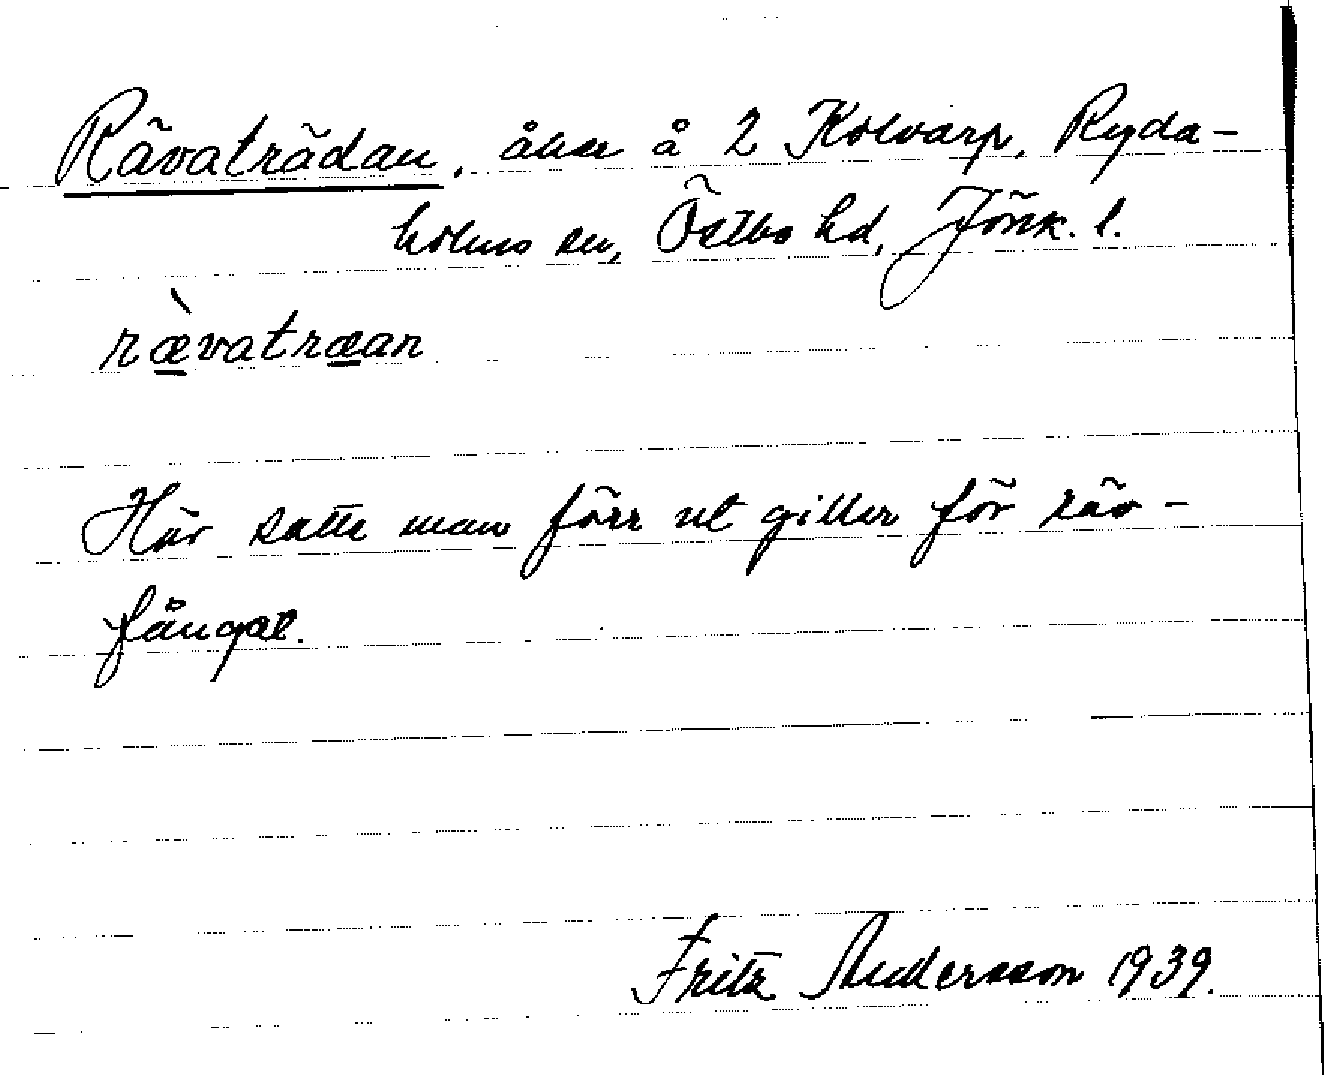 Rävaträdan, åker å 2 Kolvarp, Ryda-
holms sn, Östbo hd, Jönk. l.
rævatræan
Här satte man förr ut giller för räv-
fångst.
Fritz Andersson 1939.